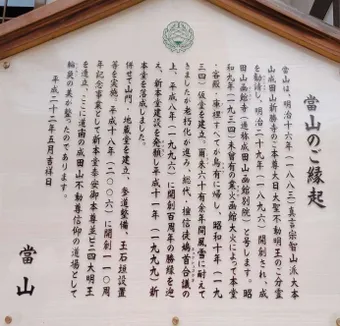 當山のご縁起
当山は、明治十六年(一八八三)真言宗智山派大本
山成田山新勝寺のご本尊大日大聖不動明王のご分霊
を勧請し、明治二十九年(一八九六)開創され、成
田山函館寺(通称成田山函館別院)と号します。昭
和九年(一九三四)未曾有の業火函館大火によって本堂
・客殿・庫裡すべてが烏有に帰し、昭和十年(一九
三四)仮堂を建立。爾来六十有余年間風雪に耐えて
きましたが老朽化が進み、総代・檀信徒鳩首合議の
上、平成八年(一九九六)に開創百周年の勝縁を迎
え、新本堂建設を発願し平成十一年(一九九九)新
本堂を落成しました。
併せて山門・地蔵堂を建立、参道整備、玉石垣設置
等を実施。平成十八年(二〇〇六)に開創一一〇周
年記念事業として新本堂奉安御本尊並ビニ四大明王
を造立、ここに道南の成田山不動尊信仰の道場として
輪奐の美が整ったのであります。
平成二十二年五月吉祥日
當山